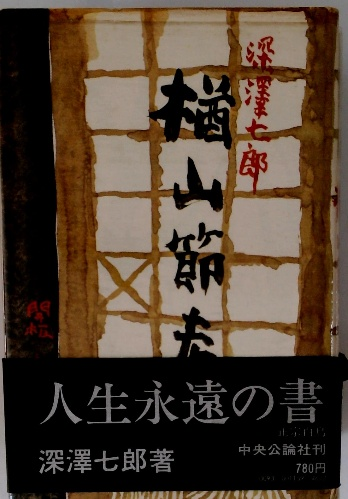 深澤七郎
楢山節考
人生永遠の書
正宗白鳥
深澤七郎著
中央公論社刊
780円